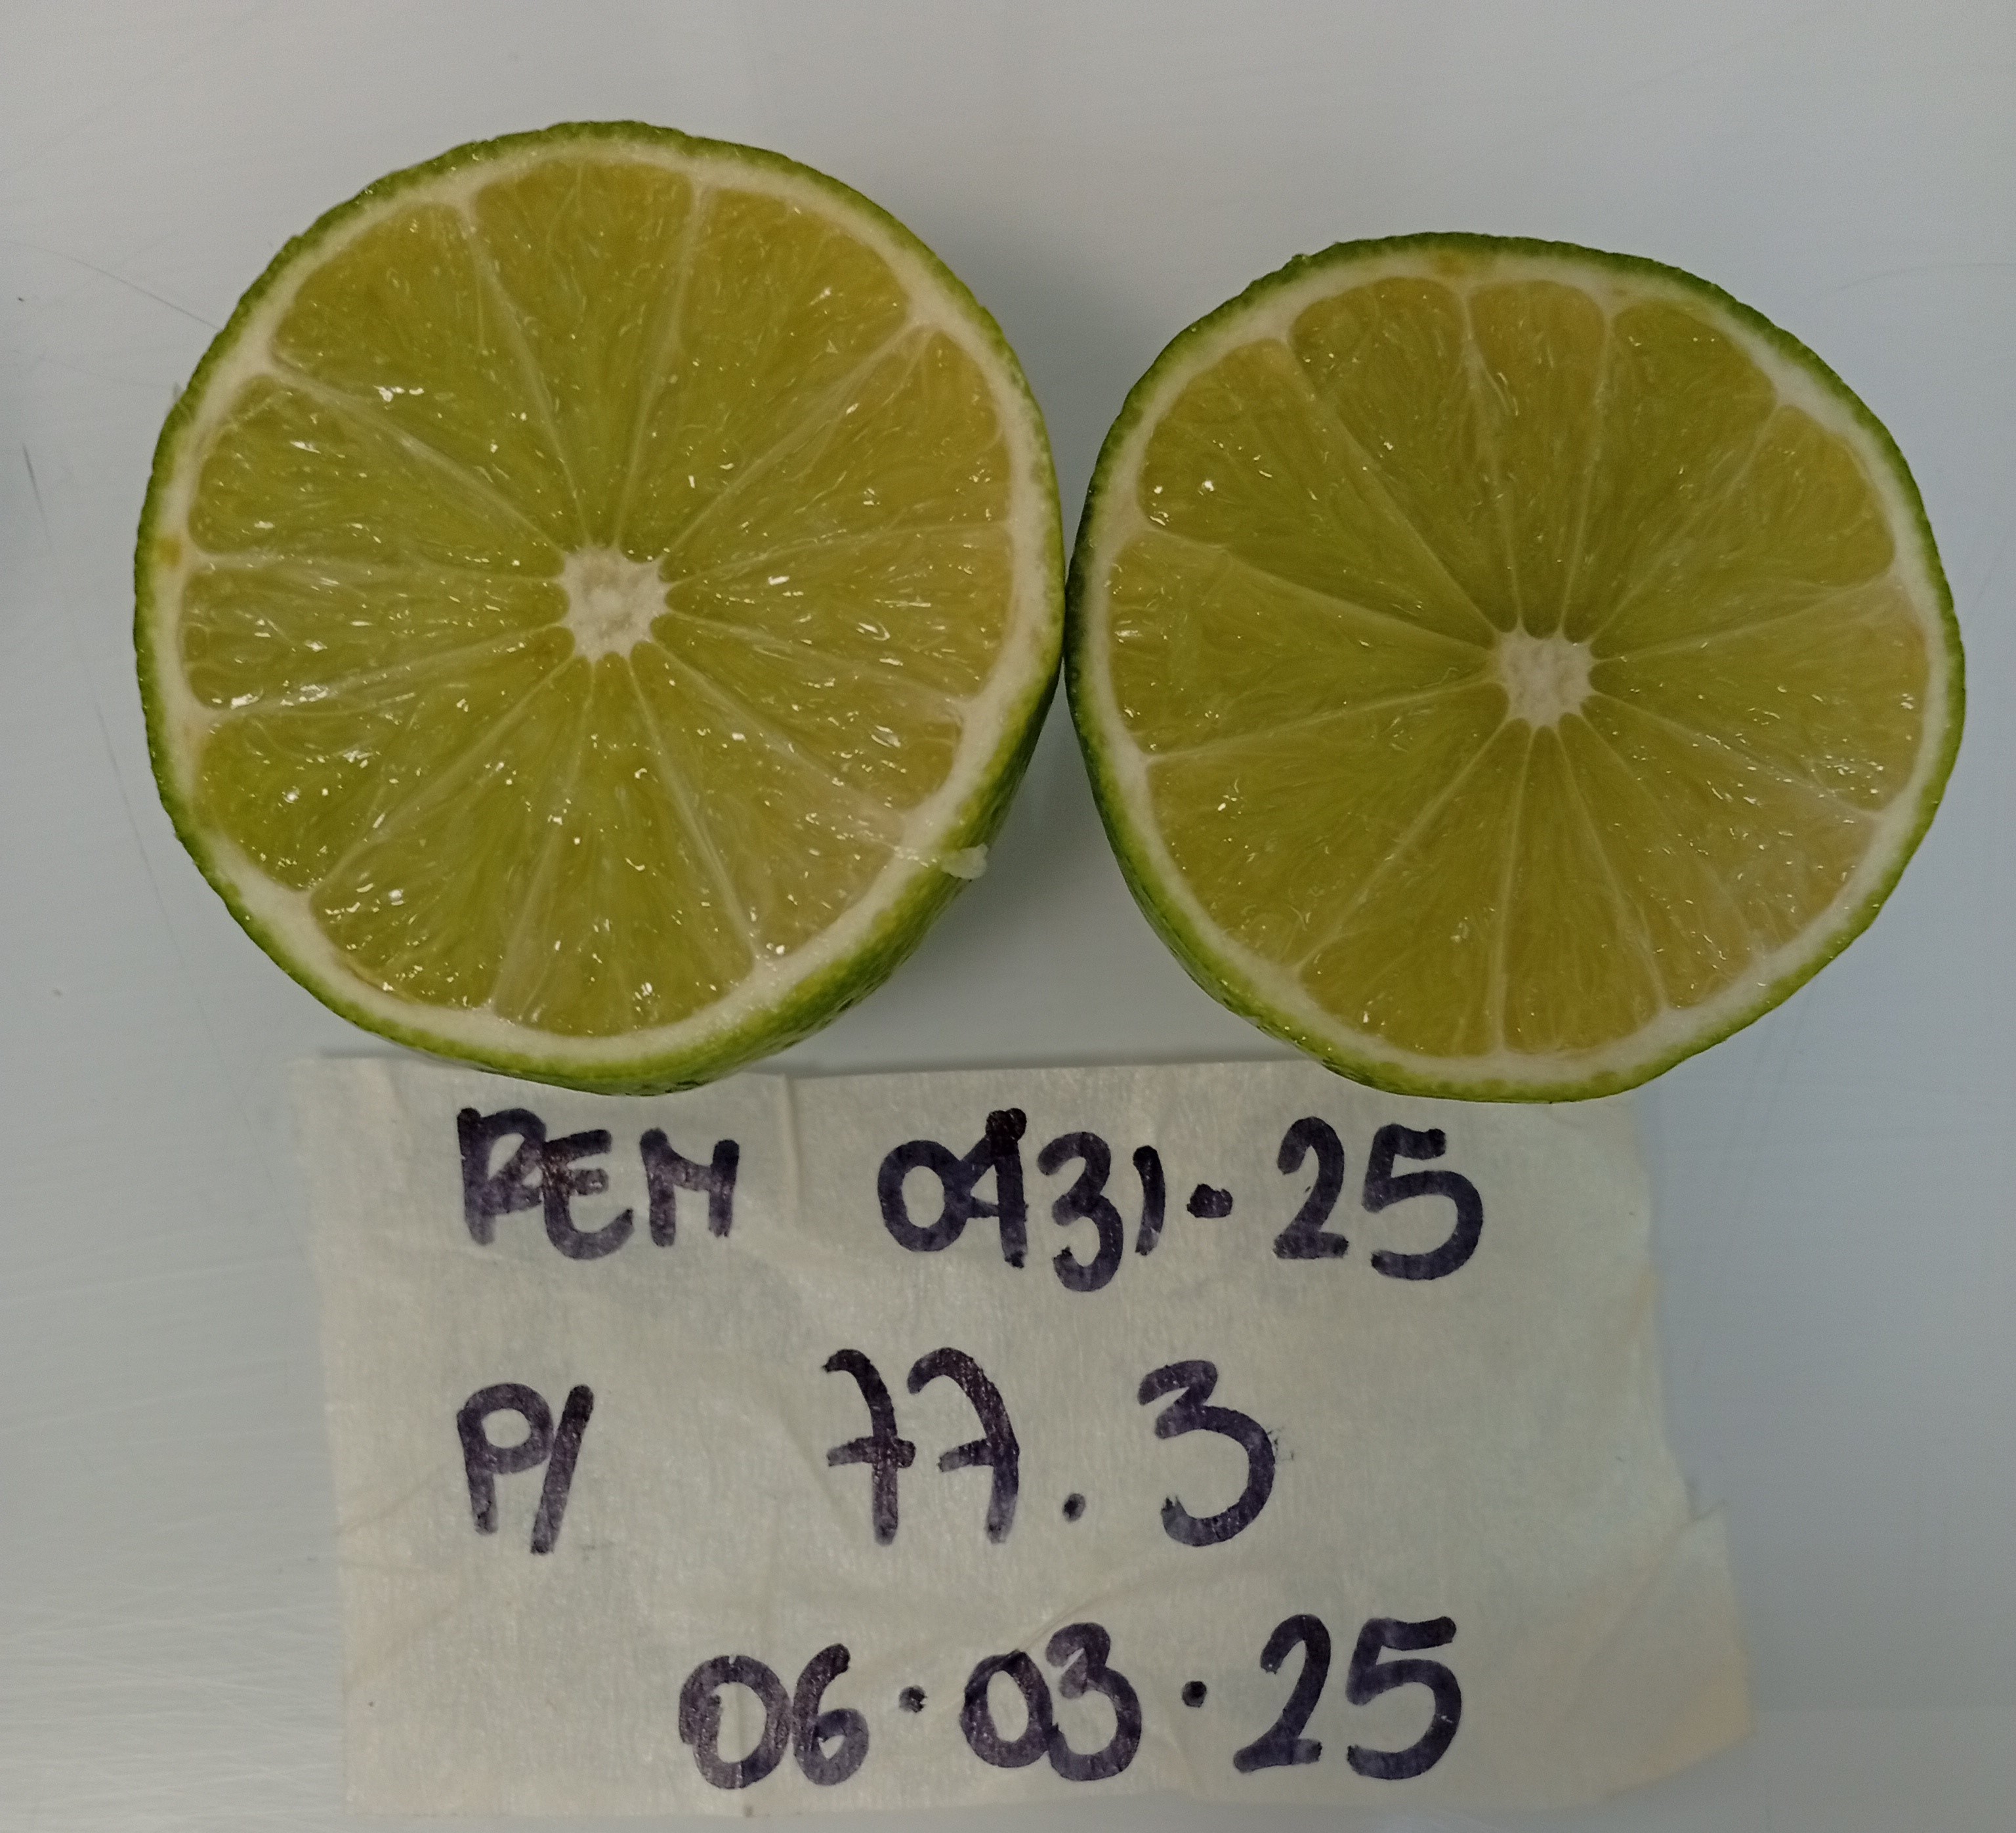 REM 0431.25
P/ 77.3
06.03.25